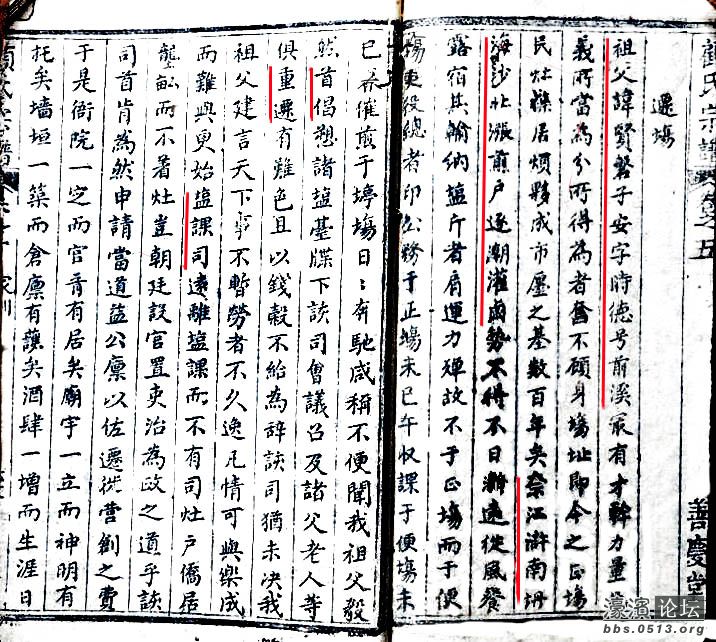 顧氏宗譜 卷之五
善慶堂
遷塲
祖父諱賢磐子安字時德号前溪最有才幹力量
義所當為分所得為者奮不顧身塲址即今之正塲
民灶襍居煩夥成市廛之基數百年矣奈江濤南坍
海沙北漲煎戶逐潮灌鹵勢不得不日漸遠從風餐
露宿其輸納塩斤者肩運力殫故不于正塲而于便
塲吏役總者印公務于正塲未巳午收課于便塲未
巳幕催煎于埻塲日：奔馳咸稱不便聞我祖父毅
然首倡愬諸塩臺牒下詼司會議召及諸父老人等
俱重遷有難色且以錢穀不給為辞詼司猶未决我
祖父建言天下事不暫勞者不久逸凡情可與樂成
而難與更始塩課司遠離塩課而不有司灶戶僑居
壟畝而不着灶豈朝廷設官置吏治為政之道乎詼
司首肯為然申請當道益公廪以佐遷從营創之費
于是衙院一定而官有居矣廟宇一立而神明有
托矣墻垣一築而倉廪有䕶矣酒肆一增而生涯日
顧氏宗譜
濠濱论坛
bbs.0513.org